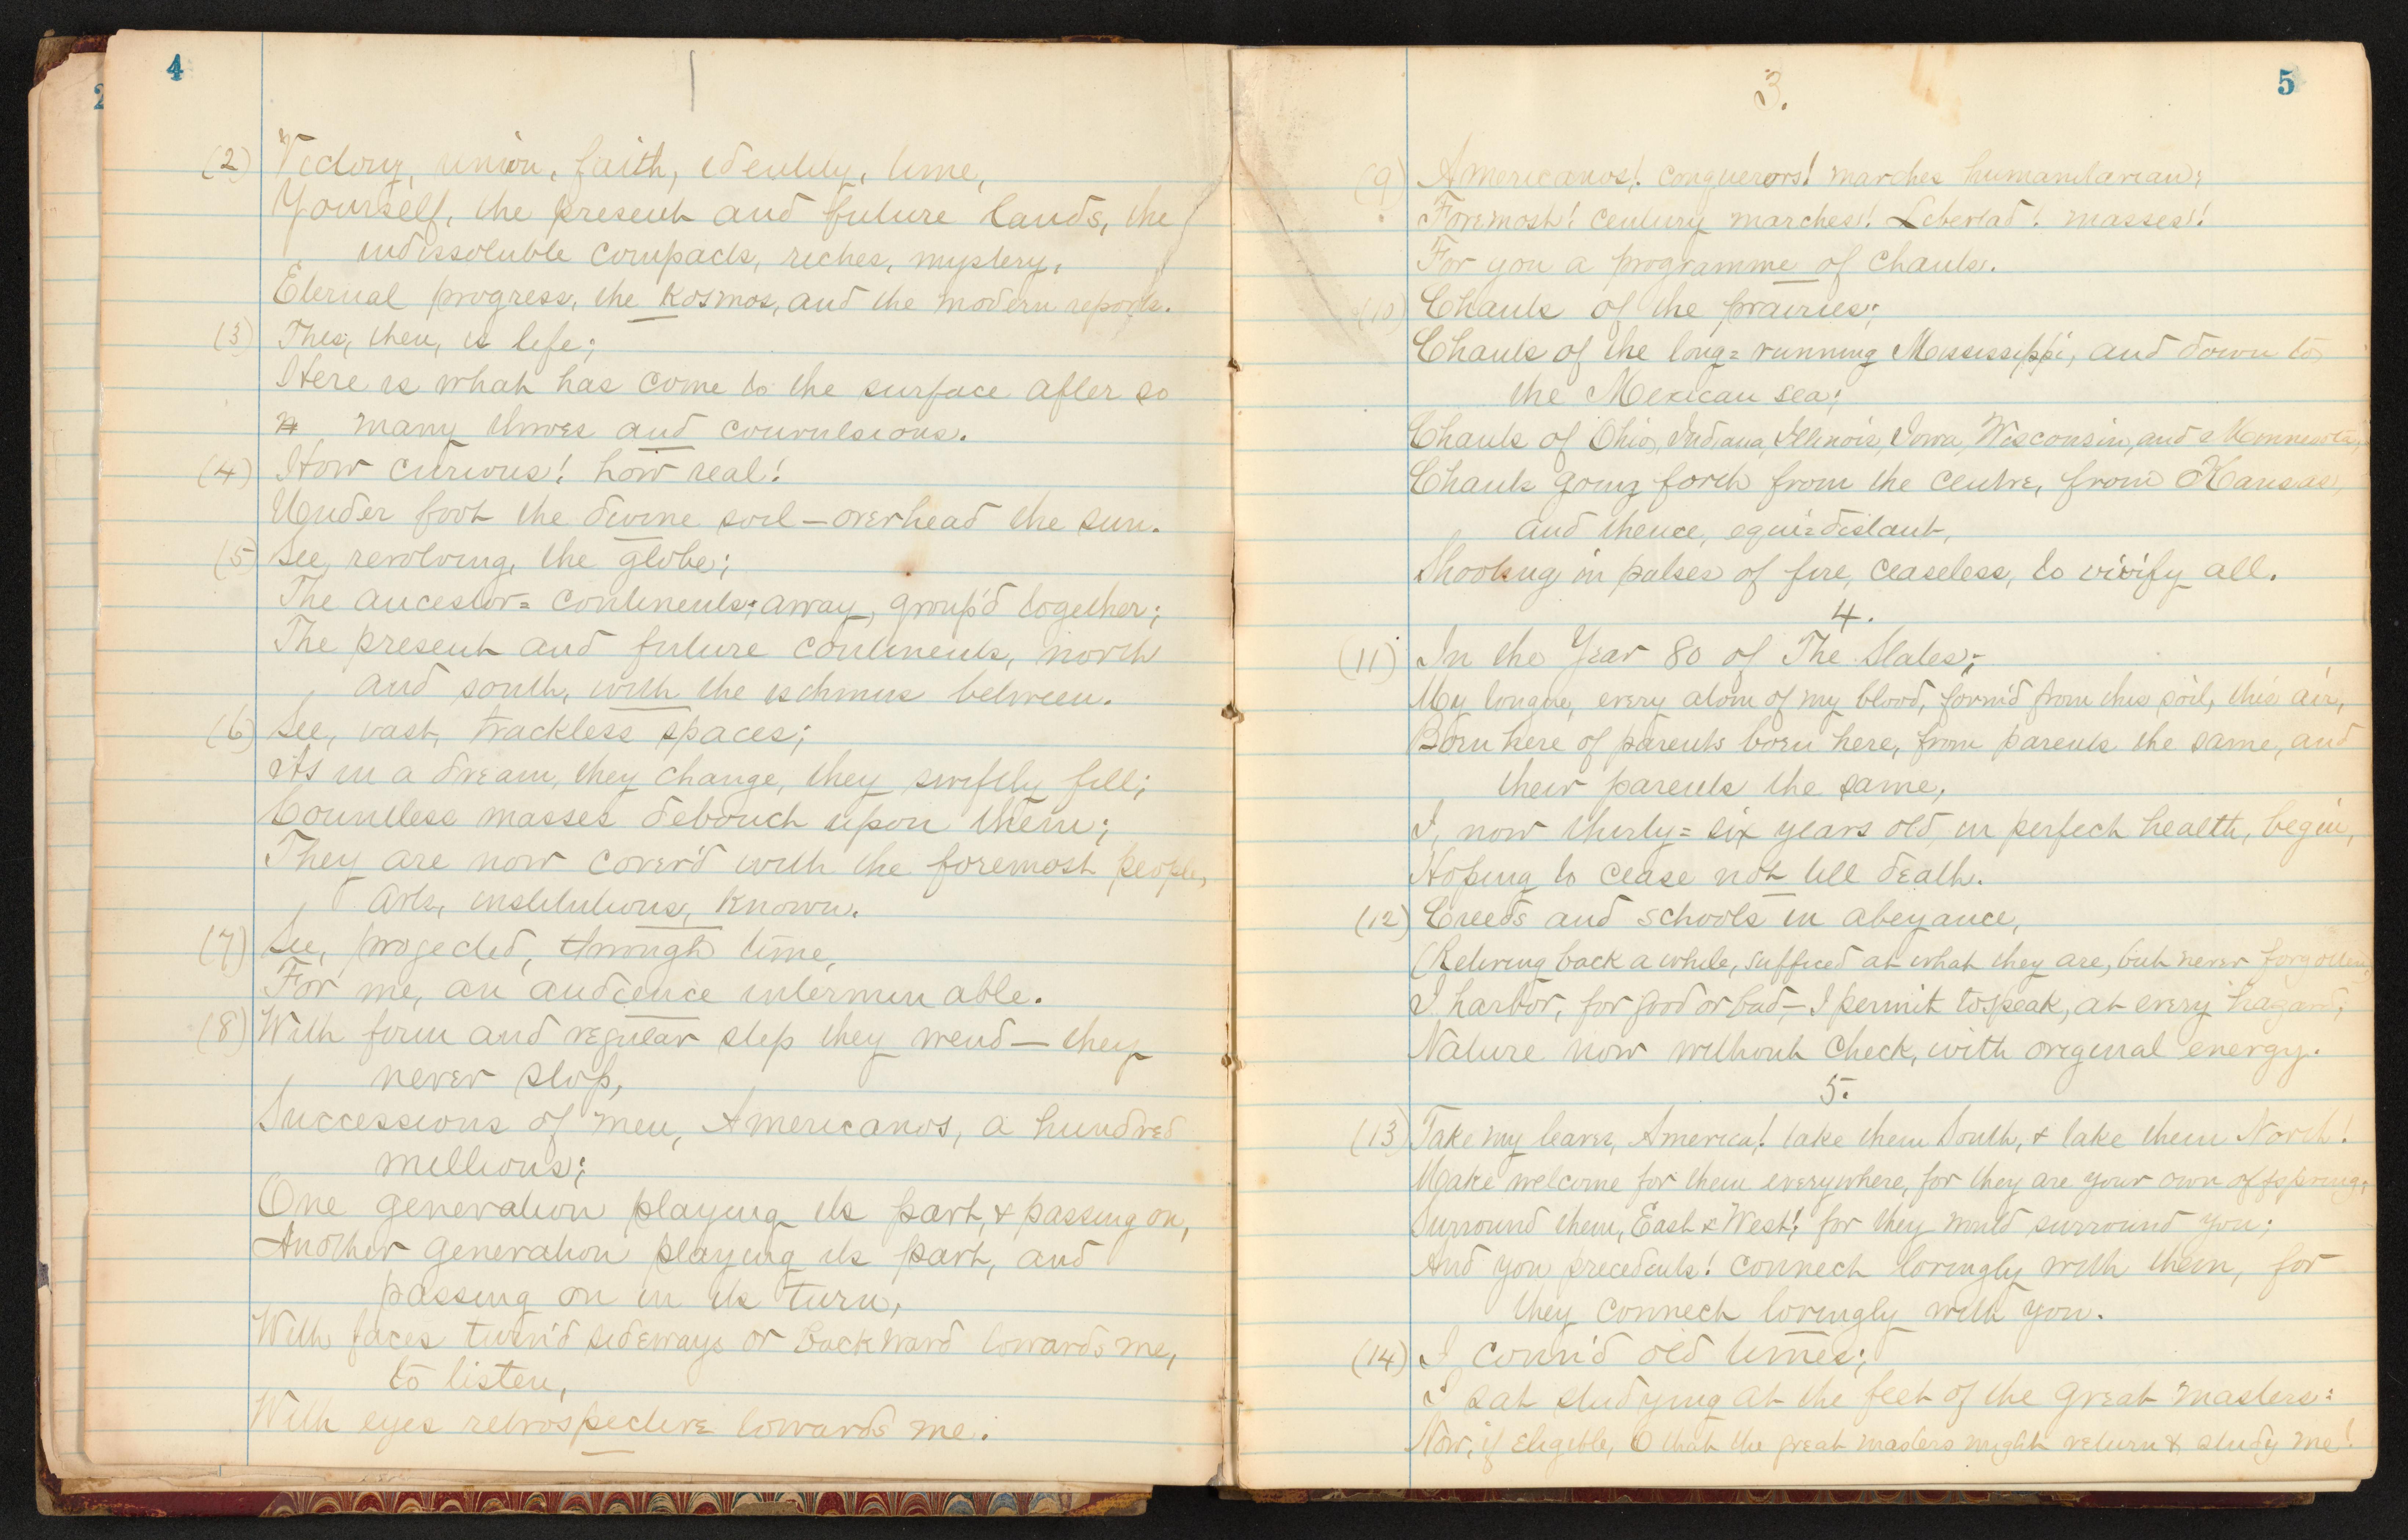 4
(2) Victory, union, faith, identity, time,
Yourself, the present and future lands, the
indissoluble compacts, riches, mystery,
Eternal progress, the kosmos, and the modern reports.
(3) This, then, is life;
Here is what has come to the surface after so
many throes and convulsions.
(4) How curious! how real!
Under foot the divine soil—overhead the sun.
(5) See, revolving, the globe;
The ancestor=continents, away, group'd together;
The present and future continents, north
and south, with the isthmus between.
(6) See, vast, trackless spaces;
As in a dream, they change, they swiftly fill;
Countless masses debouch upon them;
They are now cover'd with the foremost people,
arts, institutions, known.
(7) See, projected, through time,
For me, an audience interminable.
(8) With firm and regular step they wend—they
never stop,
Successions of men, Americanos, a hundred
millions;
One generation playing its part, & passing on,
Another generation playing its part, and
passing on in its turn,
With faces turn'd sideways or backward towards me,
to listen,
With eyes retrospective towards me.
5
3.
(9) Americanos! conquerors! marches humanitarian;
Foremost! century marches! Libertad! masses!
For you a programme of chants.
(10) Chants of the prairies;
Chants of the long=running Mississippi, and down to
the Mexican sea;
Chants of Ohio, Indiana, Illinois, Iowa, Wisconsin, and Minnesota,
Chants going forth from the centre, from Kansas,
and thence, equi=distant,
Shooting in pulses of fire, ceaseless, to vivify all.
4.
(11) In the Year 80 of The States;
My tongue, every atom of my blood, form'd from this soil, this air,
Born here of parents born here, from parents the same, and
their parents the same,
I, now thirty=six years old, in perfect health, begin,
Hoping to cease not till death.
(12) Creeds and schools in abeyance,
(Retiring back a while, sufficed at what they are, but never forgotten,)
I harbor, for good or bad—I permit to speak, at every hazard,
Nature now without check, with original energy.
5.
(13) Take my leaves, America! take them South, & take them North!
Make welcome for them everywhere, for they are your own offspring;
Surround them, East & West! for they would surround you;
And you precedents! connect lovingly with them, for
they connect lovingly with you.
(14) I conn'd old times;
I sat studying at the feet of the great masters:
Now, if eligible, O that the great masters might return & study me!